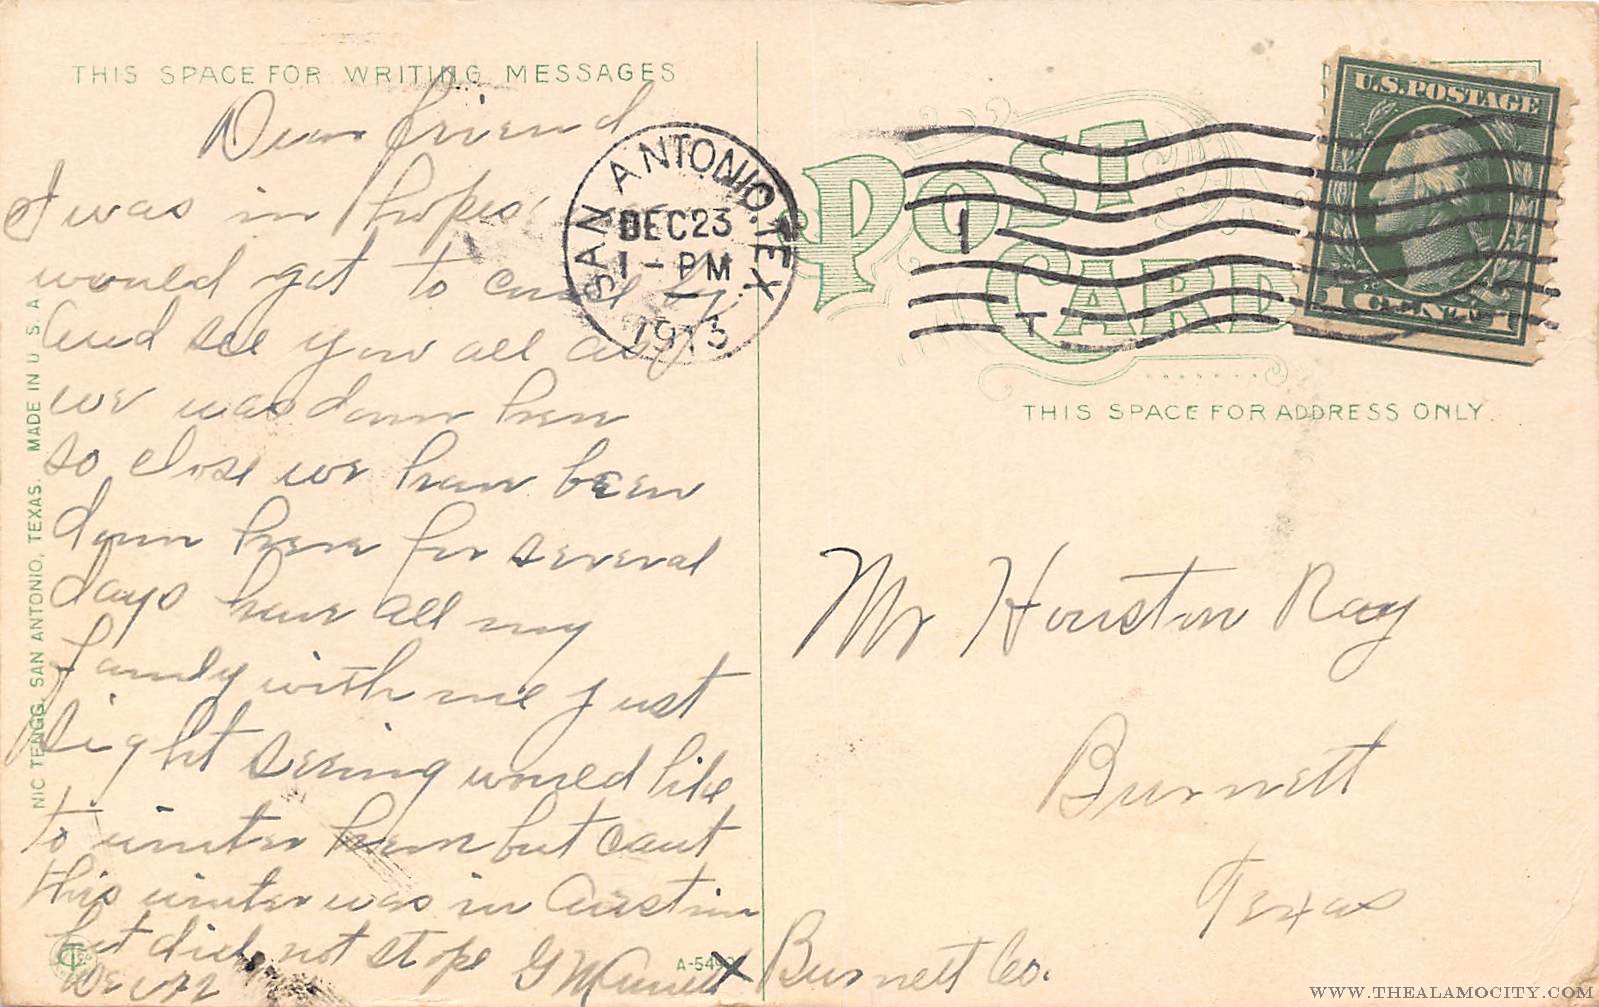 THIS SPACE FOR WRITING MESSAGES
Dear friend
I was in hopes
would get to come by
and see you all as
we was down here
so close we have been
down here for several
days have all my
family with me just
sight seeing would like
to winter here but cant
this winter was in Austin
but did not stop
Dec 22
NIC TENGG, SAN ANTONIO, TEXAS. MADE IN U. S. A
A-549
SAN ANTONIO, TEX
DEC 23
1 - PM
1913
POST CARD
1
U.S. POSTAGE
1 CENT 1
THIS SPACE FOR ADDRESS ONLY.
Mr Houston Ray
Burnett
Texas
Burnett Co.
WWW.THEALAMOCITY.COM